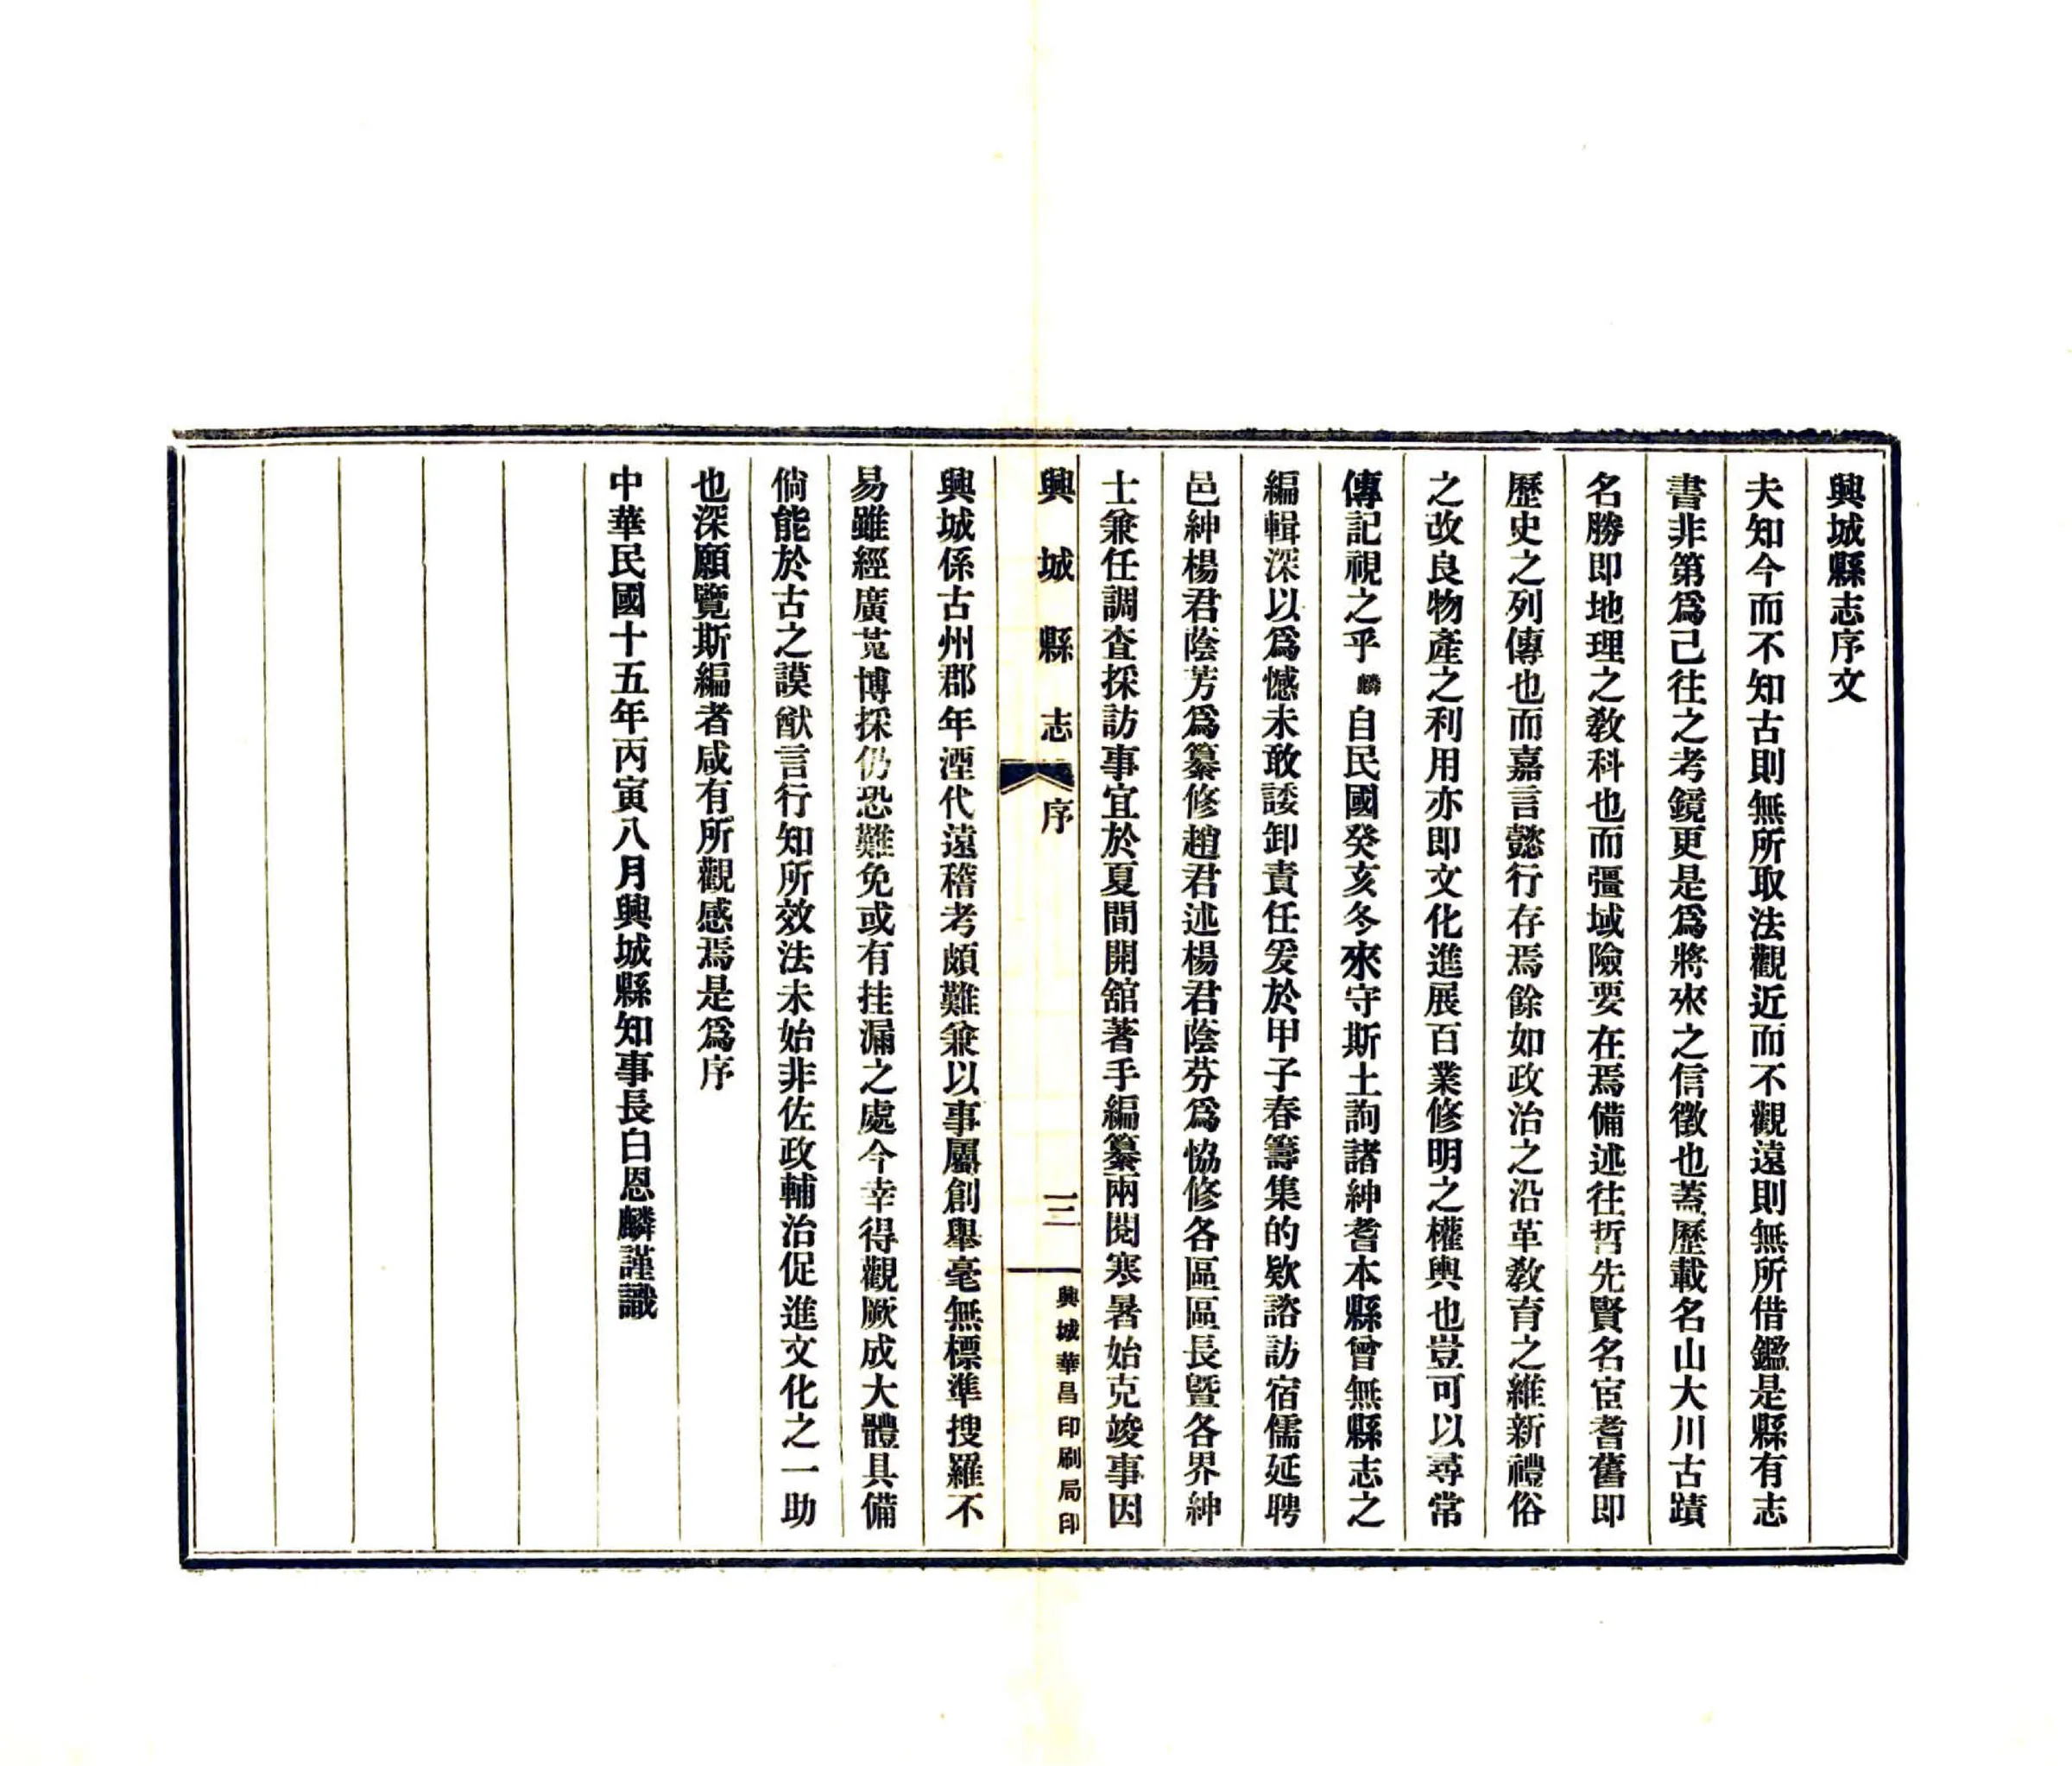 興城縣志序文
夫知今而不知古則無所取法觀近而不觀遠則無所借鑑是縣有志
書非第爲己往之考鏡更是爲將來之信徵也蓋歷載名山大川古蹟
名勝即地理之敎科也而彊域險要在焉備述往哲先賢名宦耆舊即
歷史之列傳也而嘉言懿行存焉餘如政治之沿革敎育之維新禮俗
之改良物產之利用亦即文化進展百業修明之權輿也豈可以尋常
傳記視之乎麟自民國癸亥冬來守斯土詢諸紳耆本縣曾無縣志之
編輯深以爲憾未敢諉卸責任爰於甲子春籌集的欵諮訪宿儒延聘
邑紳楊君蔭芳爲纂修趙君述楊君蔭芬爲恊修各區區長曁各界紳
士兼任調查採訪事宜於夏間開舘著手編纂兩閱寒暑始克竣事因
興城縣志 序 三 興城華昌印刷局印
興城係古州郡年湮代遠稽考頗難兼以事屬創舉毫無標準搜羅不
易雖經廣蒐博採仍恐難免或有挂漏之處今幸得觀厥成大體具備
倘能於古之謨猷言行知所效法未始非佐政輔治促進文化之一助
也深願覽斯編者咸有所觀感焉是爲序
中華民國十五年丙寅八月興城縣知事長白恩麟謹識